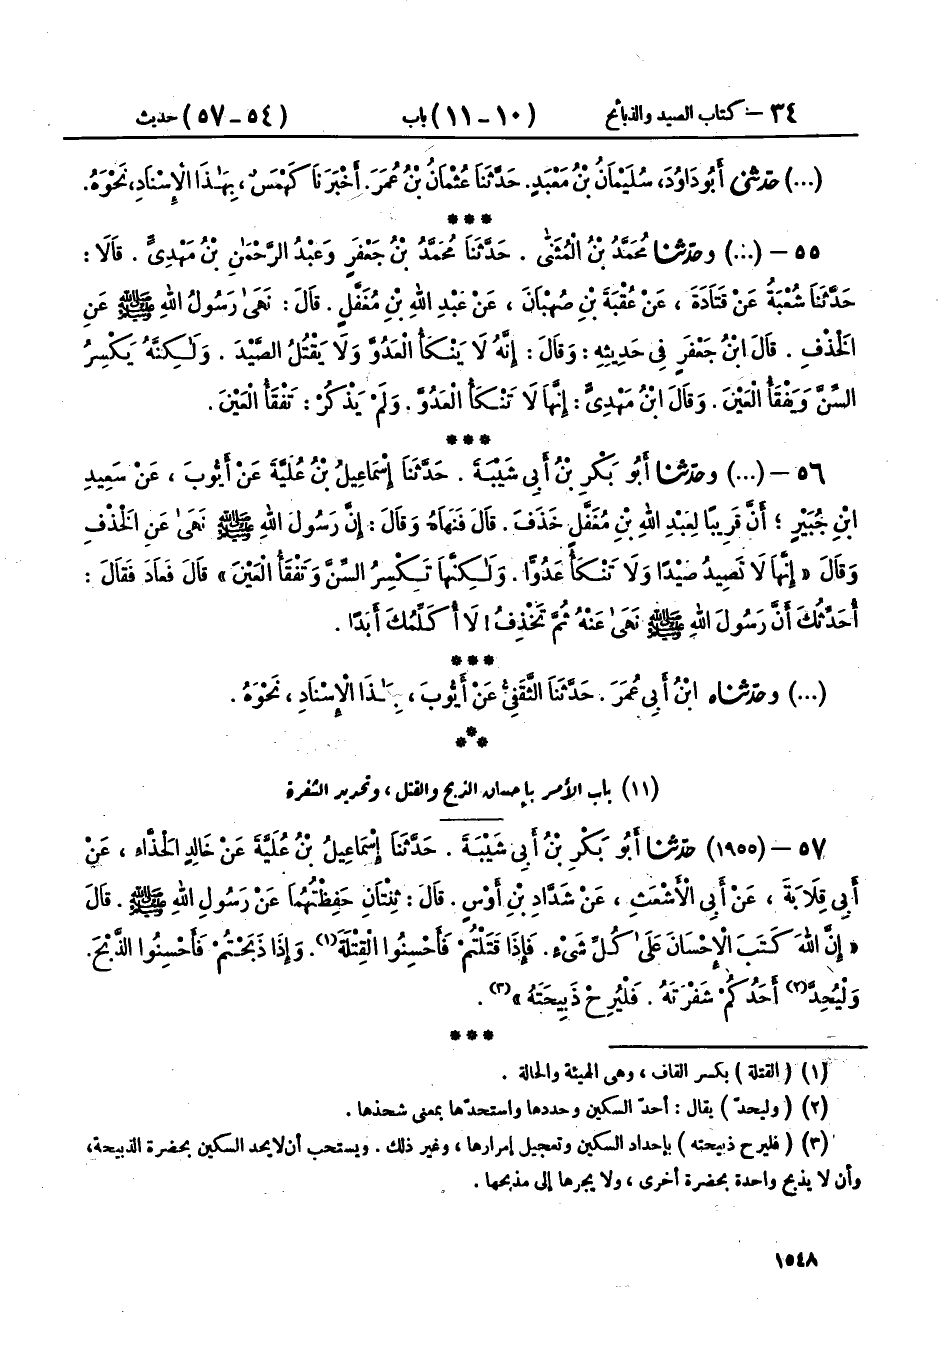 ٣٤ – كتاب الصيد والذبائح (١٠–١١) باب (٥٤–٥٧) حديث
(...) حَدَّثَنِي أَبُو دَاوُدَ، سُلَيْمَانُ بْنُ مَعْبَدٍ. حَدَّثَنَا عُثْمَانُ بْنُ عُمَرَ. أَخْبَرَنَا كَهْمَسٌ، بِهَٰذَا الْإِسْنَادِ، نَحْوَهُ.
***
٥٥ – (...) وحَدَّثَنَا مُحَمَّدُ بْنُ الْمُثَنَّىٰ . حَدَّثَنَا مُحَمَّدُ بْنُ جَعْفَرٍ وَعَبْدُ الرَّحْمَٰنِ بْنُ مَهْدِيٍّ . قَالَا :
حَدَّثَنَا شُعْبَةُ عَنْ قَتَادَةَ ، عَنْ عُقْبَةَ بْنِ صُهْبَانَ ، عَنْ عَبْدِ اللهِ بْنِ مُغَفَّلٍ . قَالَ : نَهَىٰ رَسُولُ اللهِ ﷺ عَنِ
الْخَذْفِ . قَالَ ابْنُ جَعْفَرٍ فِي حَدِيثِهِ : وَقَالَ : إِنَّهُ لَا يَنْكَأُ الْعَدُوَّ وَلَا يَقْتُلُ الصَّيْدَ . وَلَٰكِنَّهُ يَكْسِرُ
السِّنَّ وَيَفْقَأُ الْعَيْنَ . وَقَالَ ابْنُ مَهْدِيٍّ : إِنَّهَا لَا تَنْكَأُ الْعَدُوَّ . وَلَمْ يَذْكُرْ : تَفْقَأُ الْعَيْنَ .
***
٥٦ – (...) وحَدَّثَنَا أَبُو بَكْرِ بْنُ أَبِي شَيْبَةَ . حَدَّثَنَا إِسْمَاعِيلُ بْنُ عُلَيَّةَ عَنْ أَيُّوبَ ، عَنْ سَعِيدِ
ابْنِ جُبَيْرٍ ؛ أَنَّ قَرِيبًا لِعَبْدِ اللهِ بْنِ مُغَفَّلٍ خَذَفَ . قَالَ فَنَهَاهُ وَقَالَ : إِنَّ رَسُولَ اللهِ ﷺ نَهَىٰ عَنِ الْخَذْفِ
وَقَالَ « إِنَّهَا لَا تَصِيدُ صَيْدًا وَلَا تَنْكَأُ عَدُوًّا . وَلَٰكِنَّهَا تَكْسِرُ السِّنَّ وَتَفْقَأُ الْعَيْنَ » قَالَ فَعَادَ فَقَالَ :
أُحَدِّثُكَ أَنَّ رَسُولَ اللهِ ﷺ نَهَىٰ عَنْهُ ثُمَّ تَخْذِفُ ! لَا أُكَلِّمُكَ أَبَدًا .
***
(...) وحَدَّثَنَاه ابْنُ أَبِي عُمَرَ . حَدَّثَنَا الثَّقَفِيُّ عَنْ أَيُّوبَ ، بِهَٰذَا الْإِسْنَادِ ، نَحْوَهُ .
***
(١١) باب الأمر بإحسان الذبح والقتل ، وتحديد الشفرة
٥٧ – (١٩٥٥) حَدَّثَنَا أَبُو بَكْرِ بْنُ أَبِي شَيْبَةَ . حَدَّثَنَا إِسْمَاعِيلُ بْنُ عُلَيَّةَ عَنْ خَالِدٍ الْحَذَّاءِ ، عَنْ
أَبِي قِلَابَةَ ، عَنْ أَبِي الْأَشْعَثِ ، عَنْ شَدَّادِ بْنِ أَوْسٍ . قَالَ : ثِنْتَانِ حَفِظْتُهُمَا عَنْ رَسُولِ اللهِ ﷺ . قَالَ
« إِنَّ اللهَ كَتَبَ الْإِحْسَانَ عَلَىٰ كُلِّ شَيْءٍ . فَإِذَا قَتَلْتُمْ فَأَحْسِنُوا الْقِتْلَةَ(١). وَإِذَا ذَبَحْتُمْ فَأَحْسِنُوا الذَّبْحَ.
وَلْيُحِدَّ(٢) أَحَدُكُمْ شَفْرَتَهُ . فَلْيُرِحْ ذَبِيحَتَهُ »(٣) .
***
(١) ( القتلة ) بكسر القاف ، وهى الهيئة والحالة .
(٢) ( وليحدّ ) يقال : أحدّ السكين وحددها واستحدّها بمعنى شحذها .
(٣) ( فليرح ذبيحته ) بإحداد السكين وتعجيل إمرارها ، وغير ذلك . ويستحب أن لا يحد السكين بحضرة الذبيحة،
وأن لا يذبح واحدة بحضرة أخرى ، ولا يجرها إلى مذبحها .
١٥٤٨